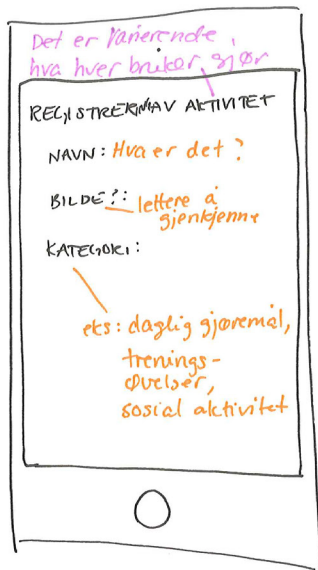 Det er varierende,
hva hver bruker gjør
REGISTRERING AV AKTIVITET
NAVN: Hva er det?
BILDE?: lettere å
gjenkjenne
KATEGORI:
eks: daglig gjøremål,
trenings-
øvelser,
sosial aktivitet